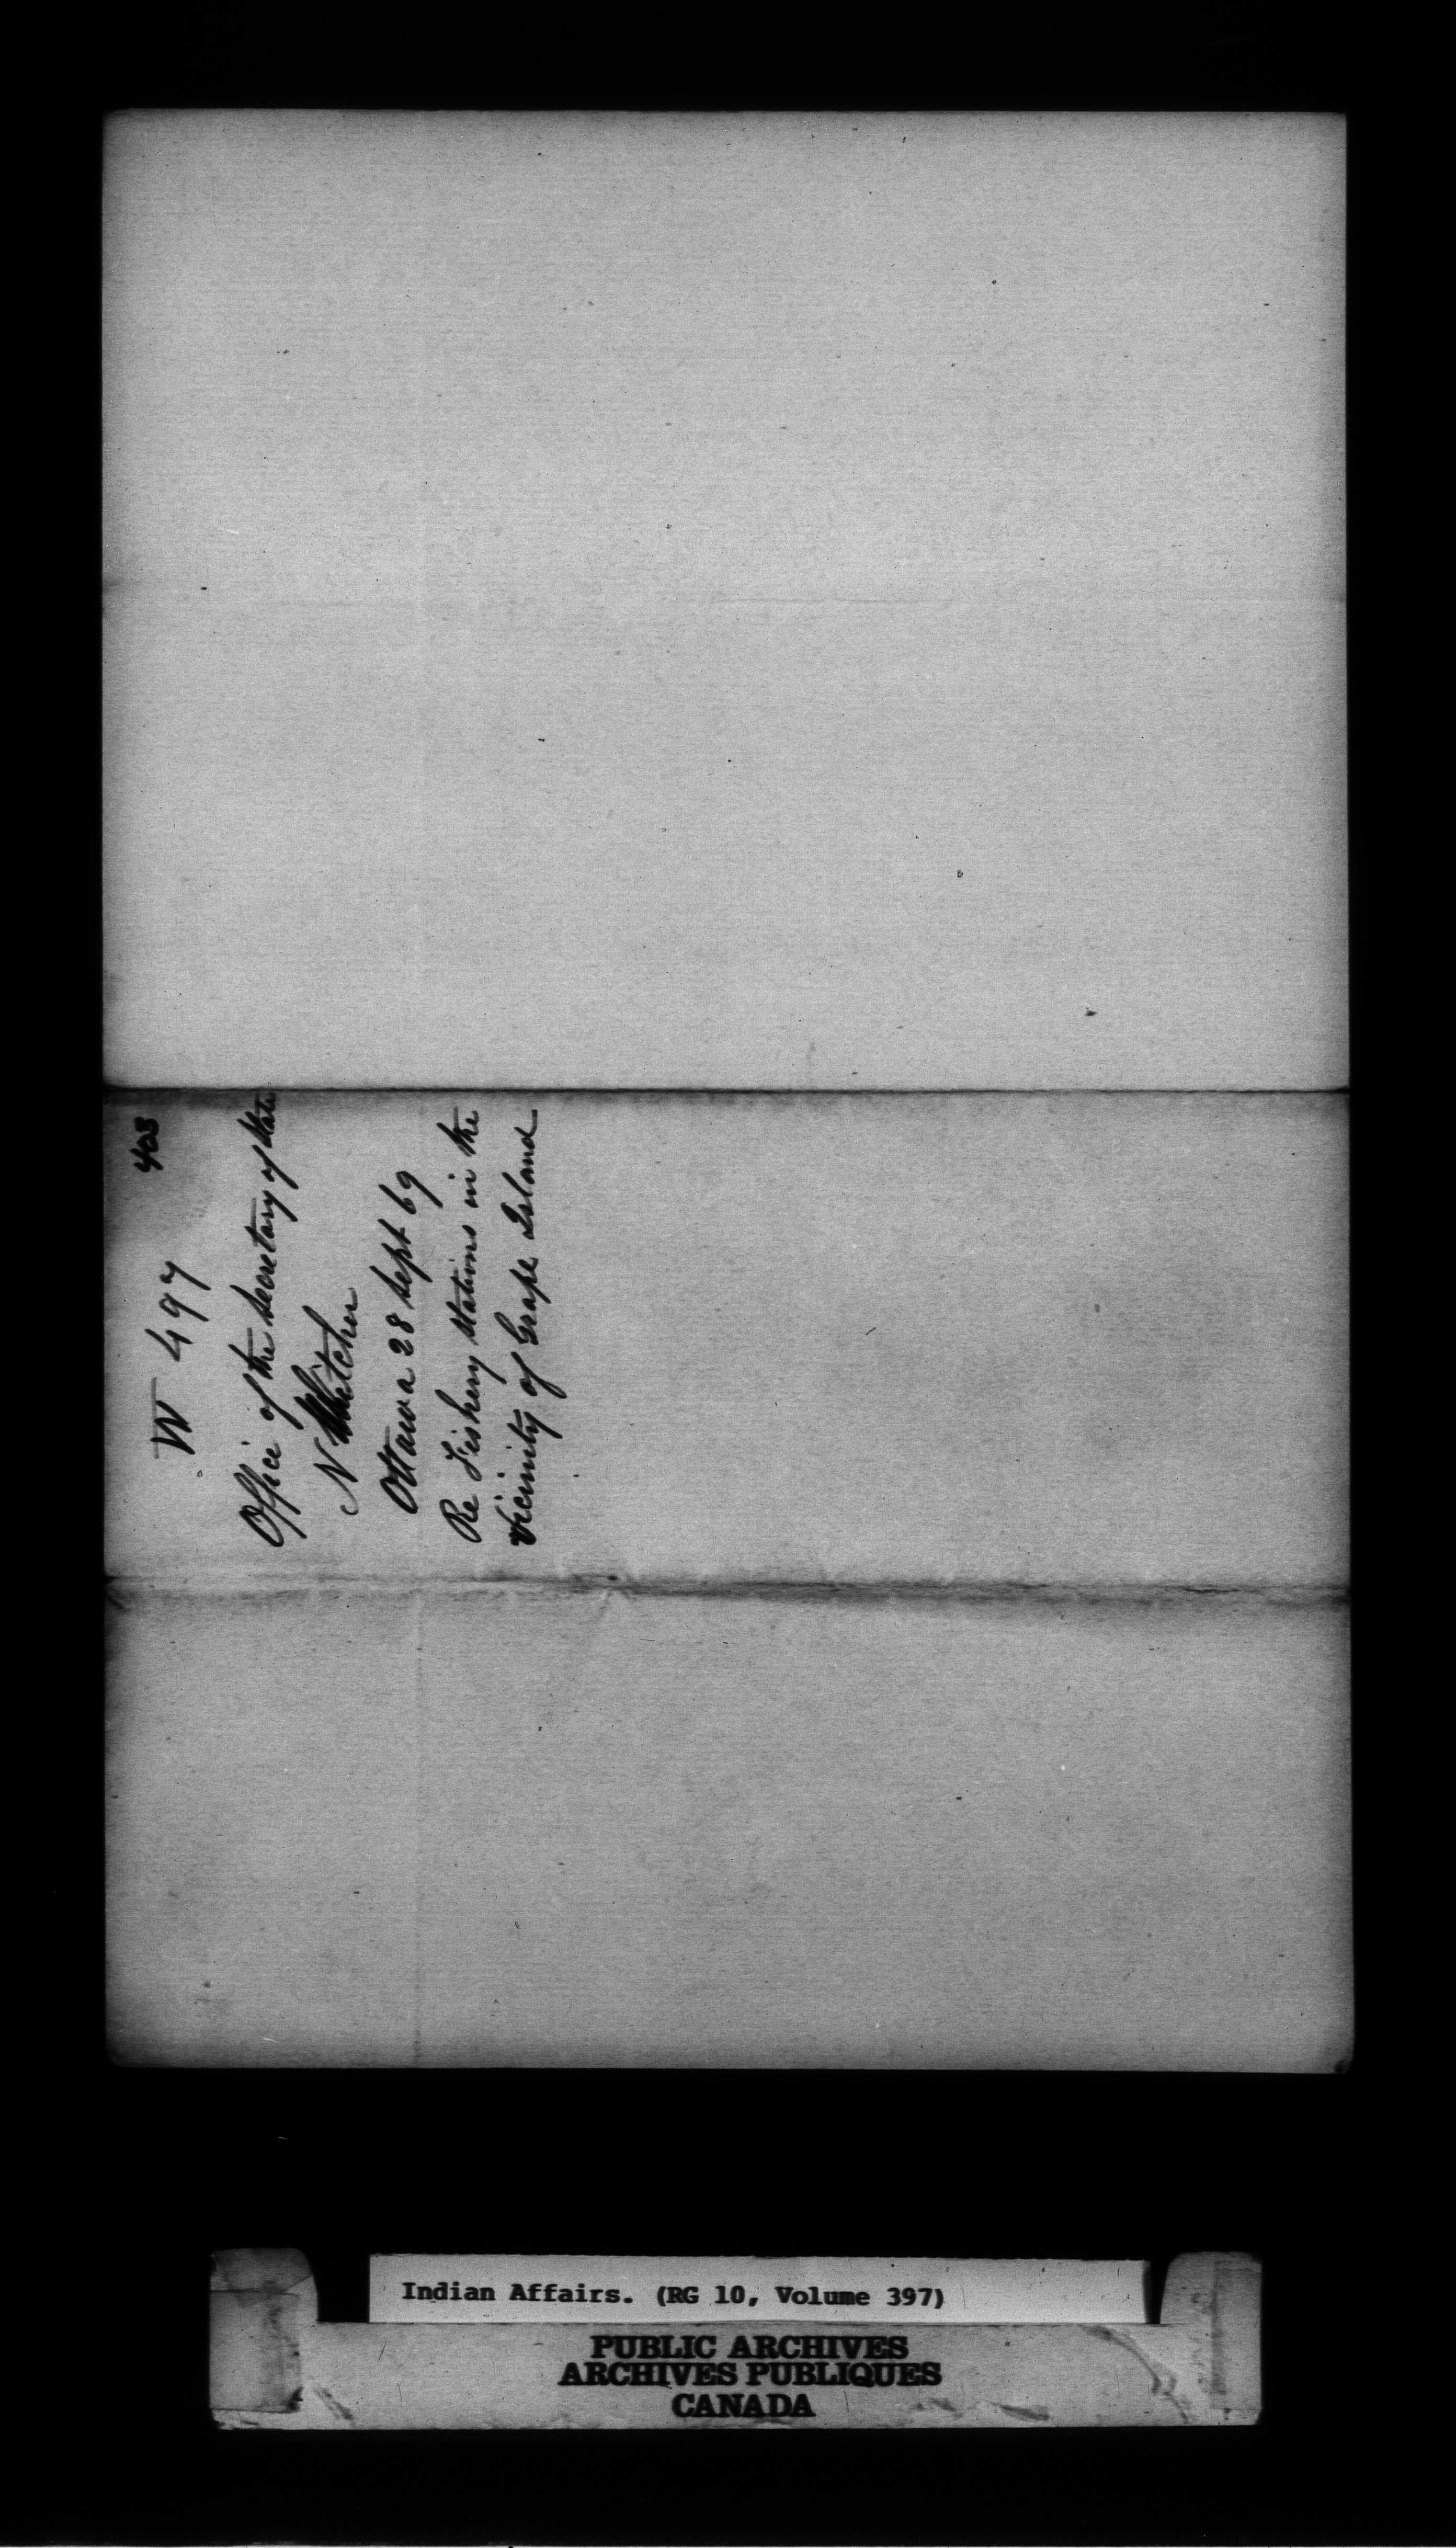 403
W 497
Office of the Secretary of State
N Whitcher
Ottawa 28 Sept 69
Re Fishery Stations in the
Vicinity of Grape Island
Indian Affairs. (RG 10, Volume 397)
PUBLIC ARCHIVES
ARCHIVES PUBLIQUES
CANADA